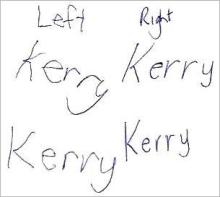 Left Right
Kerry Kerry
Kerry Kerry